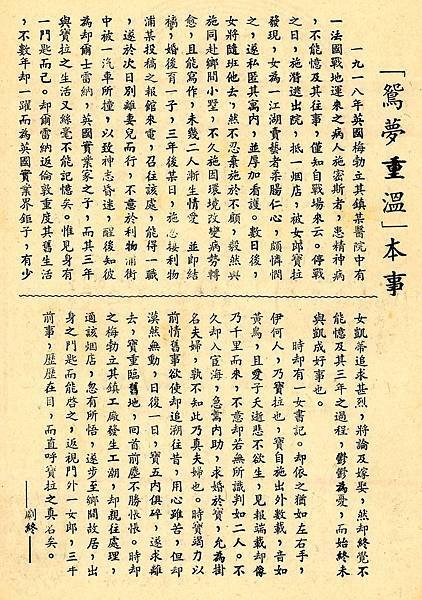 「鴛夢重溫」本事
一九一八年英國梅勃立其鎮某醫院中有
一法國戰地運來之病人施密斯者，患精神病
，不能憶及其往事，僅知自戰場來云。停戰
之日，施潛逃出院，抵一烟店，被女郎寶拉
發現，女為一江湖賣藝者柔腸仁心，頗憐憫
之，遂私匿其寓內，並厚加看護。數日後，
女將隨班他去，然不忍棄施於不顧，毅然與
施同赴鄉間小墅，不久施因環境改變病勢轉
愈，且能寫作，未幾二人漸生情愛 並即結
褵，婚後育一子，三年後某日，施忽接利物
浦某投稿之報館來電，召往該處，能得一職
，遂於次日別離妻兒而行，不意於利物浦街
中被一汽車所撞，以致神志昏迷，醒後知彼
為却爾士雷納，英國實業家之子，而其三年
與寶拉之生活又絲毫不能記憶矣。惟見身有
一門匙而已。却爾雷納返倫敦重度其舊生活
，不數年却一躍而為英國實業界鉅子，有少
女凱蒂追求甚烈，將論及嫁娶，然却終覺不
能憶及其三年之過程，鬱鬱為憂，而始終未
與凱成好事也。
時却有一女書記。却依之猶如左右手，
伊何人，乃寶拉也，寶自施出外數載，音如
黃鳥，且愛子夭逝悲不欲生，見報端載却像
乃千里而來，不意却若無所識判如二人。不
久却入宦海，急需內助，求婚於寶，允為掛
名夫婦，孰不知此乃真夫婦也。時寶竭力以
前情舊事欲使却追溯往昔，用心雖苦，但却
漠然無動，日後一日，寶五內俱碎，遂求離
去，寶重臨舊地，回首前塵不勝悵悵。時却
之梅勃立其鎮工廠發生工潮，却親往處理，
過該烟店，忽有所悟，遂步至鄉間故居，出
身之門匙而能啟之，返視門外一女郎，三年
前事，歷歷在目，而直呼寶拉之真名矣。
——劇終——